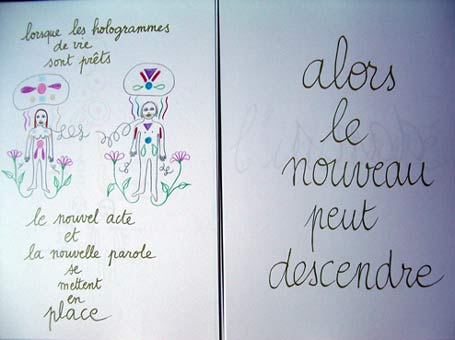 lorsque les hologrammes
de vie
sont prêts
le nouvel acte
et
la nouvelle parole
se
mettent
en
place
alors
le
nouveau
peut
descendre